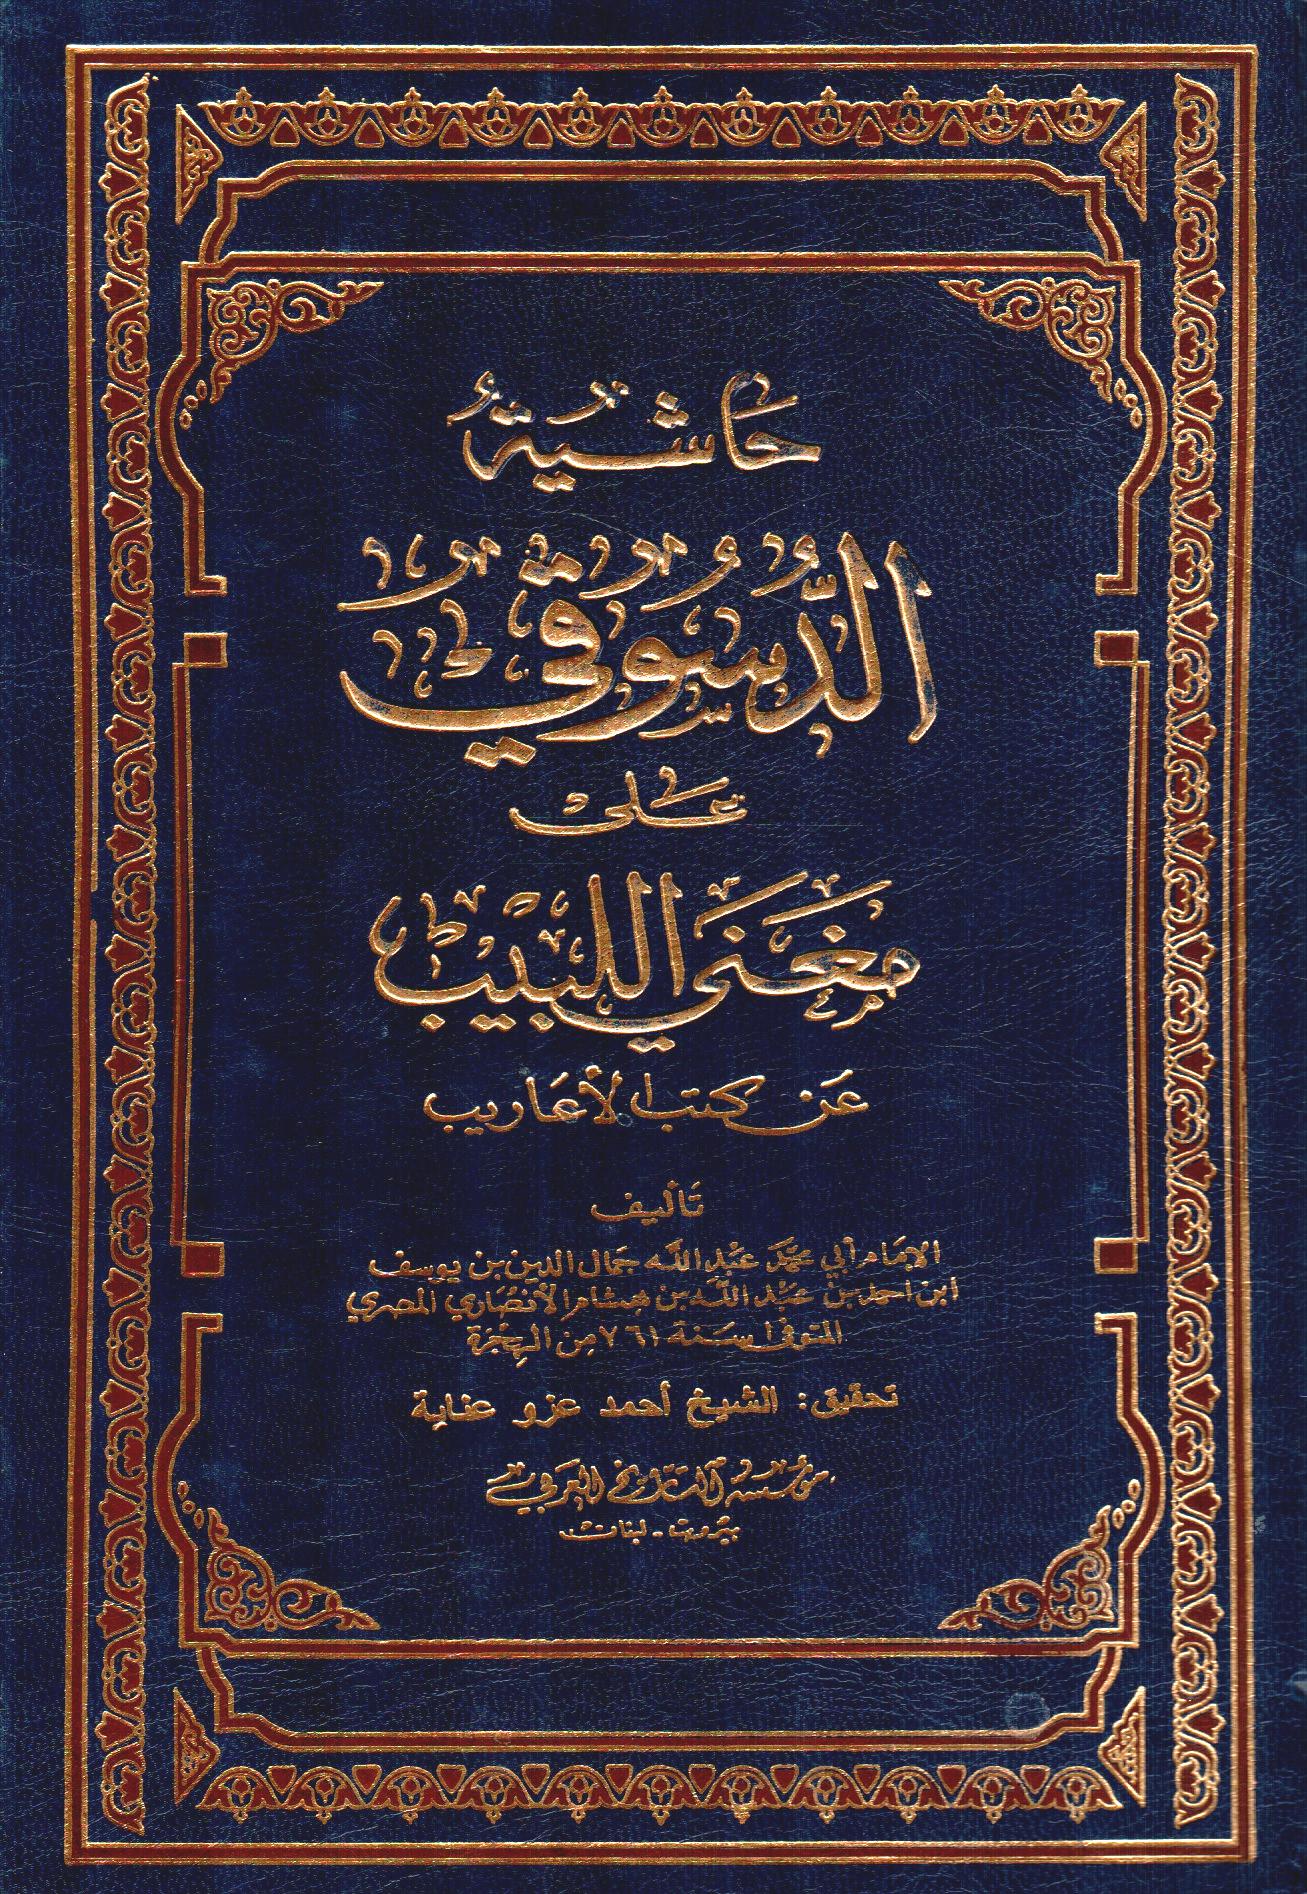 حَاشِيَةُ
الدُّسُوقِي
عَلَى
مُغْنِي اللَّبِيب
عَن كتب الأعَاريب
تَأليف
الإمَام أبي محمَّد عَبْد اللَّه جَمال الدين بن يوسف
ابن احمد بن عَبْد اللَّه بن هشام الأنصَاري المصري
المتوفى سَنة ٧٦١ مِن الهِجْرَة
تحقيق: الشيخ أحمد عزو عناية
مؤسسة التاريخ العربي
بيروت - لبنان